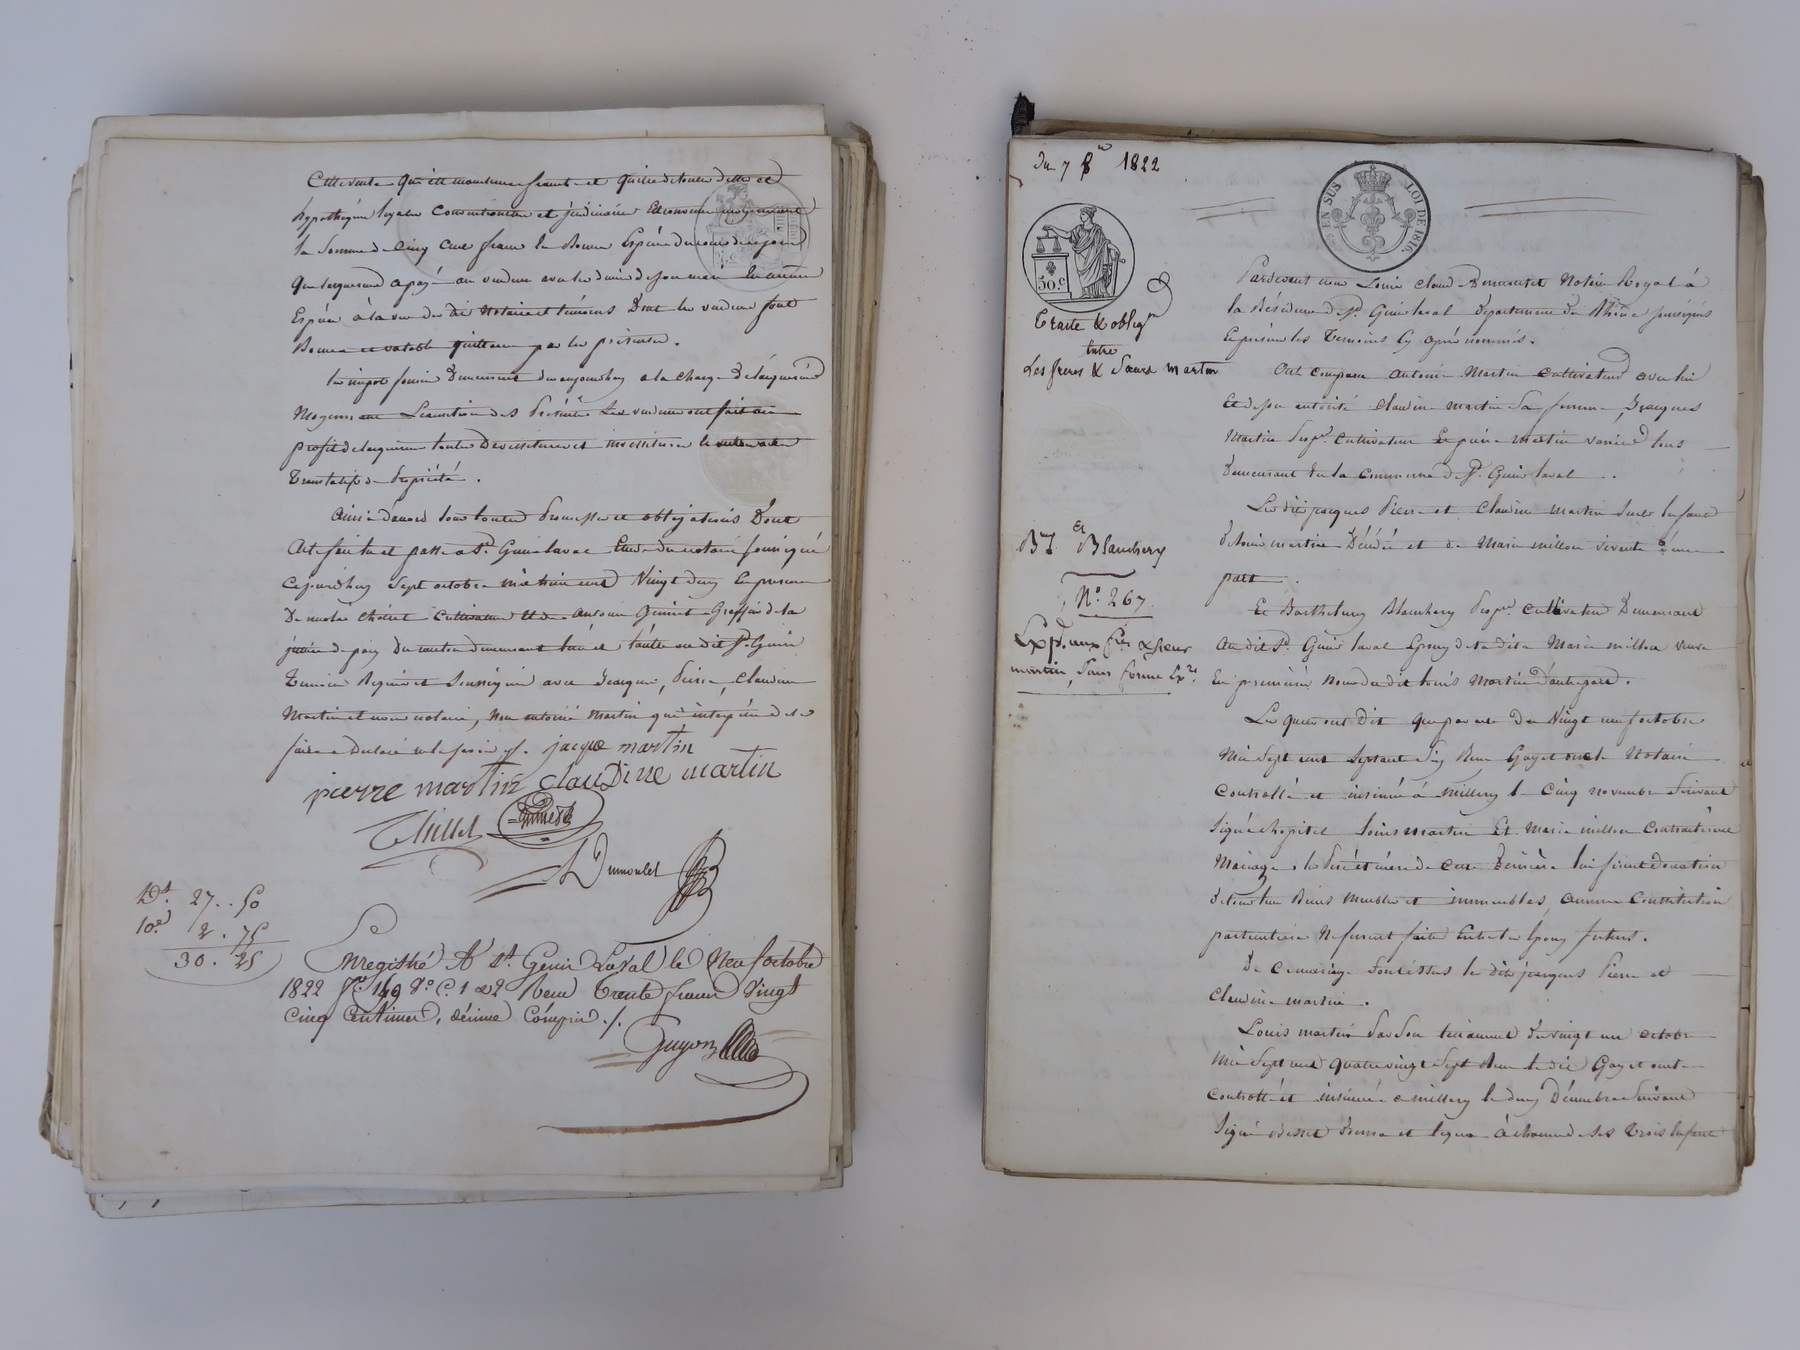 Cette vente qui est moyennant francs et quitte de toutes dettes et
hypothèques légales conventionnelles et judiciaires
la somme de cinq cent francs la
que l'acquereur a payé au vendeur en
Espèces à la vue du dit Notaire et témoins Dont le vendeur fait
Bonne et valable quittance par les présentes.
a la charge de l'acquereur
Moyennant
profit de l'acquereur toutes Devestitures et investitures
translatif de Propriété.
Ainsi d'accord sous toutes Promesses et obligations Dont
Acte fait lu et passé a St. Genis laval Etude du notaire soussigné
Cejourdhuy Sept octobre mil huit cent Vingt deux En presence
De Chillet Cultivateur et de Antoine Greffier de la
justice de paix du canton demeurant audit St. Genis
Temoins Requis et Soussignés avec Jacques, Pierre, Claudine
Martin et nous notaire, non antoine martin qui interpellé de le
faire a Declaré ne le savoir ./.
jacque martin
pierre martin claudine martin
Chillet
Dumoulet
Dt. 27..50
10e. 2.75
30.25
Enregistré A St. Genis Laval le Neuf octobre
1822 fo. 149 vo. C. 1 et 2 Recu trente francs Vingt
Cinq Centimes, décime Compris ./.
Guyon
Du 7 8bre 1822
EN SUS
LOI DE 1816.
50 c
Traité & obligon
Entre
Les freres & Soeurs martin
Et
BI Blanchery
No. 267
Expon. aux frs & Soeur
martin, sans forme Exre.
Pardevant nous Louis Claude Dumoulet Notaire Royal à
la Résidence de St. Genis laval Departement du Rhône soussigné
En présence des Temoins cy après nommés.
Ont comparu antoine Martin cultivateur avec lui
Et de son autorité Claudine martin Sa femme, Jacques
Martin Propre. cultivateur Et pierre martin tous
Demeurant en la Commune de St. Genis laval.
Les dits jacques Pierre et Claudine martin seuls Enfans
de Louis martin Décédé et de Marie millon vivante d'une
part.
Et Barthelemy Blanchery Propre cultivateur Demeurant
Au dit St. Genis laval Epoux de la dite Marie millon veuve
En premières Noces du dit Louis Martin d'autre part.
Lesquels ont Dit que par acte Du Vingt neuf octobre
Mil Sept cent septante Six Recu Gayet Notaire
Controllé et insinué à millery le Cinq novembre Suivant
Signé hopital Louis martin Et Marie millon Contracterent
Mariage, les Pere et mere de cette Dernière lui firent donation
de tous leurs Biens meubles et immeubles aucune Constitution
particuliere Ne furent faites Entre les Epoux futurs.
De Ce mariage sont issus les dits jacques Pierre et
Claudine martin.
Louis martin Par Son testament du vingt un octobre
Mil Sept cent quatre vingt Sept Recu le dit Gayet
Controllé et insinué a millery le deux Décembre Suivant
Signé Donna et legua à chacun de ses trois Enfans